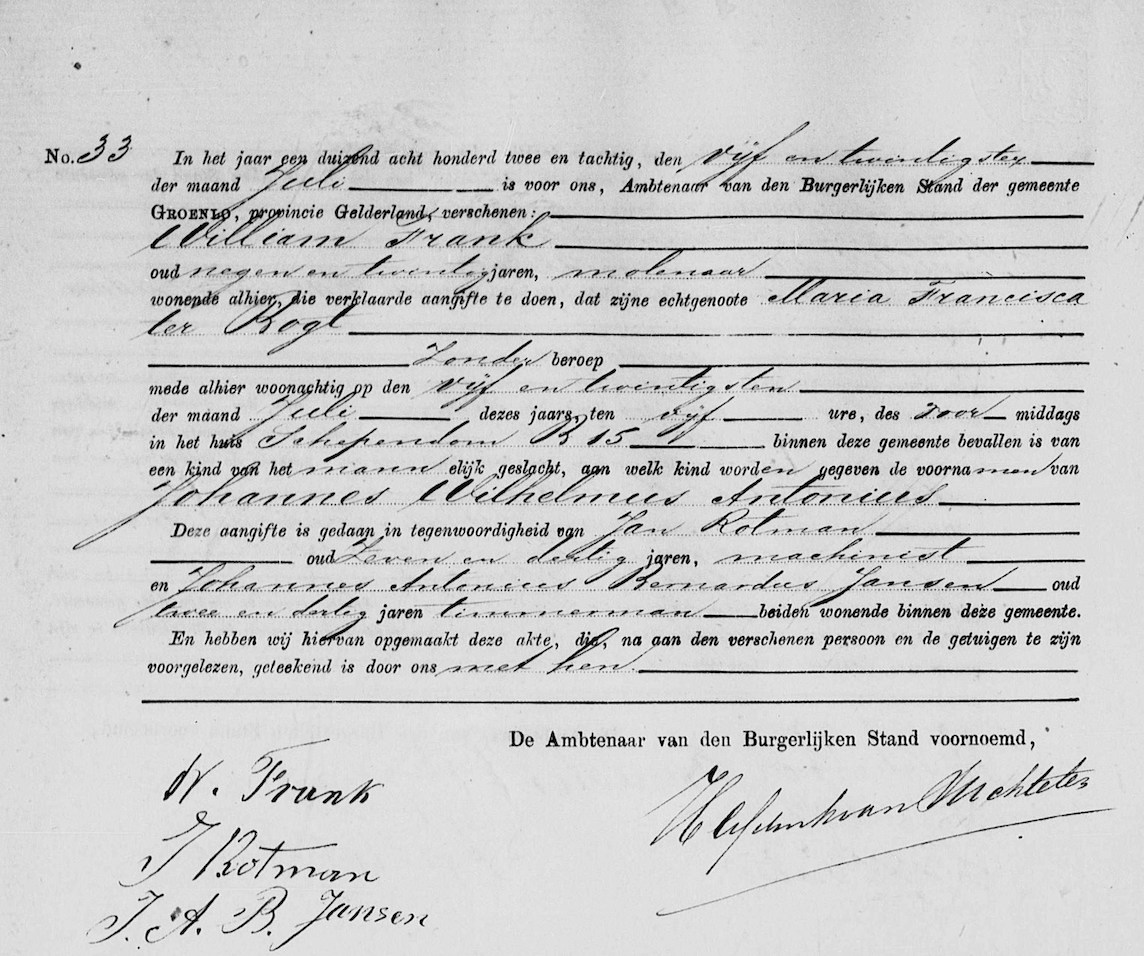 No. 33 In het jaar een duizend acht honderd twee en tachtig, den vijf en twintigsten
der maand Juli is voor ons, Ambtenaar van den Burgerlijken Stand der gemeente
GROENLO, provincie Gelderland, verschenen:
William Frank
oud negen en twintig jaren, molenaar
wonende alhier, die verklaarde aangifte te doen, dat zijne echtgenoote Maria Francisca
ter Bogt
Zonder beroep
mede alhier woonachtig op den vijf en twintigsten
der maand Juli dezes jaars, ten vijf ure, des voor middags
in het huis Schependom B 15 binnen deze gemeente bevallen is van
een kind van het mann elijk geslacht, aan welk kind worden gegeven de voornamen van
Johannes Wilhelmus Antonius
Deze aangifte is gedaan in tegenwoordigheid van Jan Rotman
oud Zeven en dertig jaren, machinist
en Johannes Antonius Bernardus Jansen oud
twee en dertig jaren timmerman beiden wonende binnen deze gemeente.
En hebben wij hiervan opgemaakt deze akte, die, na aan den verschenen persoon en de getuigen te zijn
voorgelezen, geteekend is door ons met hen
De Ambtenaar van den Burgerlijken Stand voornoemd,
W. Frank
J Rotman
J. A. B. Jansen